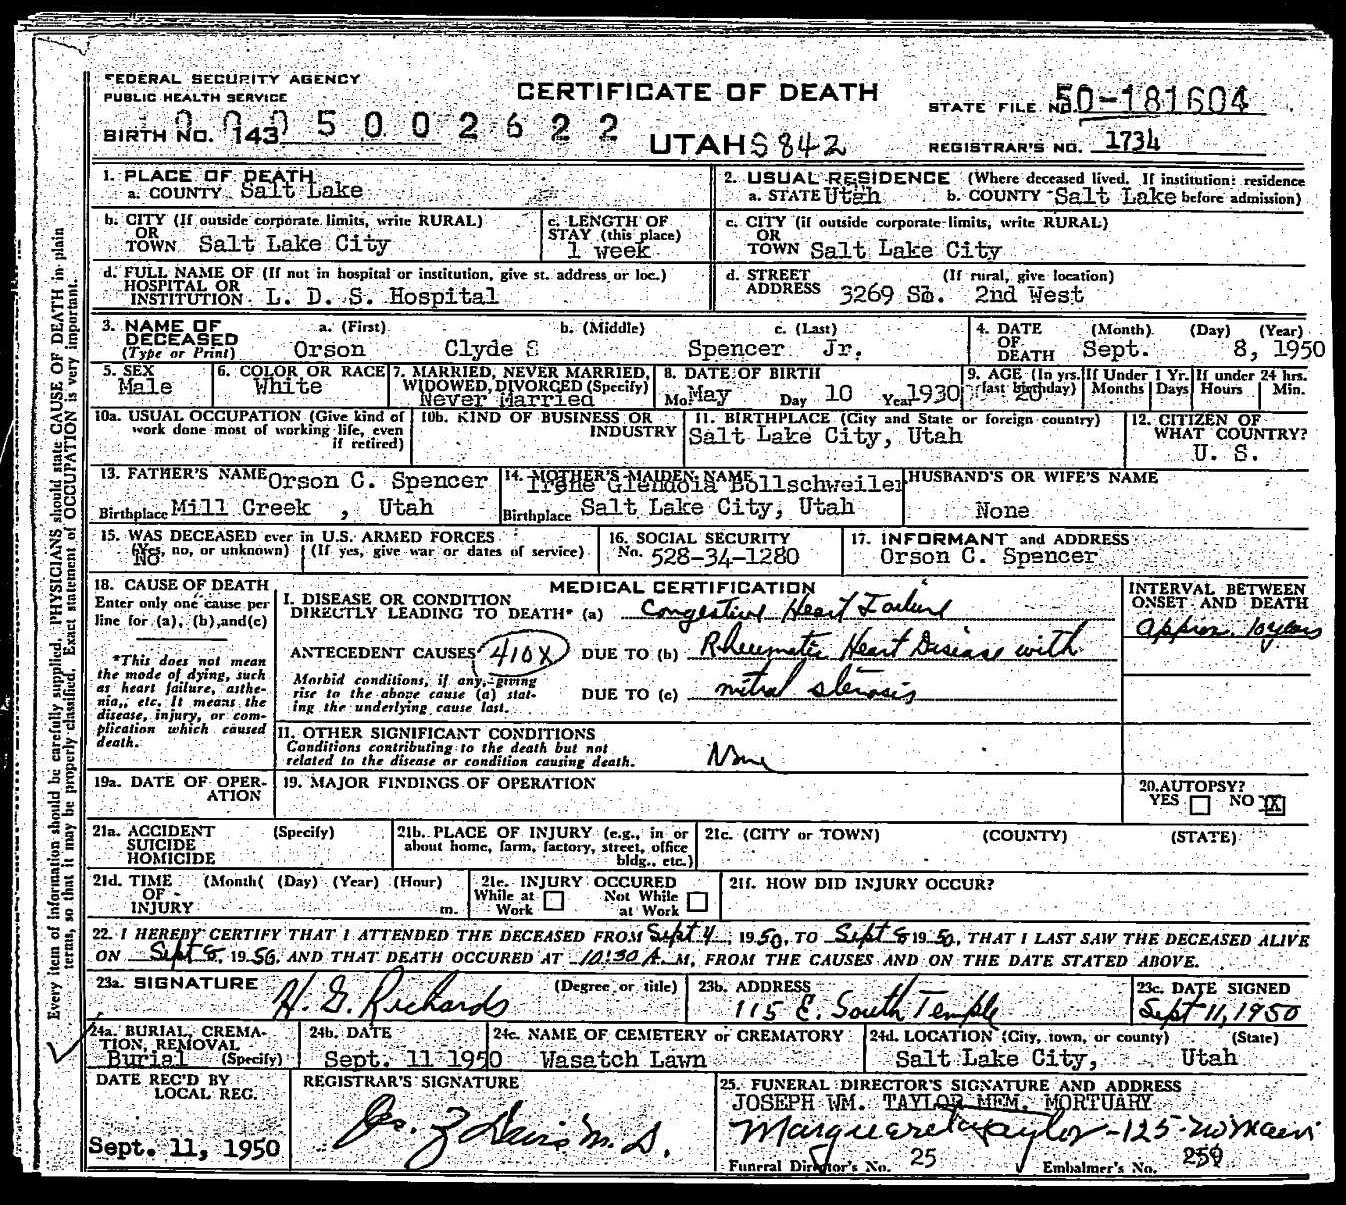 FEDERAL SECURITY AGENCY
PUBLIC HEALTH SERVICE
CERTIFICATE OF DEATH
STATE FILE NO. 50-181604
BIRTH NO. 143
0005002622
UTAH S842
REGISTRAR'S NO. 1734
1. PLACE OF DEATH
a. COUNTY Salt Lake
2. USUAL RESIDENCE (Where deceased lived. If institution: residence
a. STATE Utah b. COUNTY Salt Lake before admission)
b. CITY (If outside corporate limits, write RURAL)
OR
TOWN Salt Lake City
c. LENGTH OF
STAY (this place)
1 week
c. CITY (if outside corporate limits, write RURAL)
OR
TOWN Salt Lake City
d. FULL NAME OF (If not in hospital or institution, give st. address or loc.)
HOSPITAL OR
INSTITUTION L. D. S. Hospital
d. STREET (If rural, give location)
ADDRESS 3269 So. 2nd West
3. NAME OF
DECEASED
(Type or Print)
a. (First) b. (Middle) c. (Last)
Orson Clyde S Spencer Jr.
4. DATE (Month) (Day) (Year)
OF
DEATH Sept. 8, 1950
5. SEX
Male
6. COLOR OR RACE
White
7. MARRIED, NEVER MARRIED,
WIDOWED, DIVORCED (Specify)
Never Married
8. DATE OF BIRTH
Mo. May Day 10 Year 1930
9. AGE (In yrs.
last birthday)
20
If Under 1 Yr.
Months Days
If under 24 hrs.
Hours Min.
10a. USUAL OCCUPATION (Give kind of
work done most of working life, even
if retired)
10b. KIND OF BUSINESS OR
INDUSTRY
11. BIRTHPLACE (City and State or foreign country)
Salt Lake City, Utah
12. CITIZEN OF
WHAT COUNTRY?
U. S.
13. FATHER'S NAME Orson C. Spencer
Birthplace Mill Creek , Utah
14. MOTHER'S MAIDEN NAME
Irene Glendoia Bollschweiler
Birthplace Salt Lake City, Utah
HUSBAND'S OR WIFE'S NAME
None
15. WAS DECEASED ever in U.S. ARMED FORCES
(Yes, no, or unknown) (If yes, give war or dates of service)
No
16. SOCIAL SECURITY
No. 528-34-1280
17. INFORMANT and ADDRESS
Orson C. Spencer
18. CAUSE OF DEATH
Enter only one cause per
line for (a), (b), and (c)
*This does not mean
the mode of dying, such
as heart failure, asthe-
nia, etc. It means the
disease, injury, or com-
plication which caused
death.
MEDICAL CERTIFICATION
I. DISEASE OR CONDITION
DIRECTLY LEADING TO DEATH* (a) Congestive Heart Failure
ANTECEDENT CAUSES 410X DUE TO (b) Rheumatic Heart Disease with
Morbid conditions, if any, giving
rise to the above cause (a) stat-
ing the underlying cause last.
DUE TO (c) mitral stenosis
INTERVAL BETWEEN
ONSET AND DEATH
approx. 10 years
II. OTHER SIGNIFICANT CONDITIONS
Conditions contributing to the death but not
related to the disease or condition causing death.
None
19a. DATE OF OPER-
ATION
19. MAJOR FINDINGS OF OPERATION
20. AUTOPSY?
YES NO X
21a. ACCIDENT (Specify)
SUICIDE
HOMICIDE
21b. PLACE OF INJURY (e.g., in or
about home, farm, factory, street, office
bldg., etc.)
21c. (CITY or TOWN) (COUNTY) (STATE)
21d. TIME (Month( (Day) (Year) (Hour)
OF
INJURY m.
21e. INJURY OCCURED
While at Work Not While at Work
21f. HOW DID INJURY OCCUR?
22. I HEREBY CERTIFY THAT I ATTENDED THE DECEASED FROM Sept 4, 1950, TO Sept 8 1950, THAT I LAST SAW THE DECEASED ALIVE
ON Sept 8, 1950 AND THAT DEATH OCCURED AT 10:30 A. M, FROM THE CAUSES AND ON THE DATE STATED ABOVE.
23a. SIGNATURE (Degree or title)
H. G. Richards
23b. ADDRESS
115 E. South Temple
23c. DATE SIGNED
Sept 11, 1950
24a. BURIAL, CREMA-
TION, REMOVAL
Burial (Specify)
24b. DATE
Sept. 11 1950
24c. NAME OF CEMETERY or CREMATORY
Wasatch Lawn
24d. LOCATION (City, town, or county) (State)
Salt Lake City, Utah
DATE REC'D BY
LOCAL REG.
Sept. 11, 1950
REGISTRAR'S SIGNATURE
M. D.
25. FUNERAL DIRECTOR'S SIGNATURE AND ADDRESS
JOSEPH WM. TAYLOR MEM. MORTUARY
Marguerite Taylor - 125 - No Main
Funeral Director's No. 25 Embalmer's No. 259
Every item of information should be carefully supplied. PHYSICIANS should state CAUSE OF DEATH in plain
terms, so that it may be properly classified. Exact statement of OCCUPATION is very important.